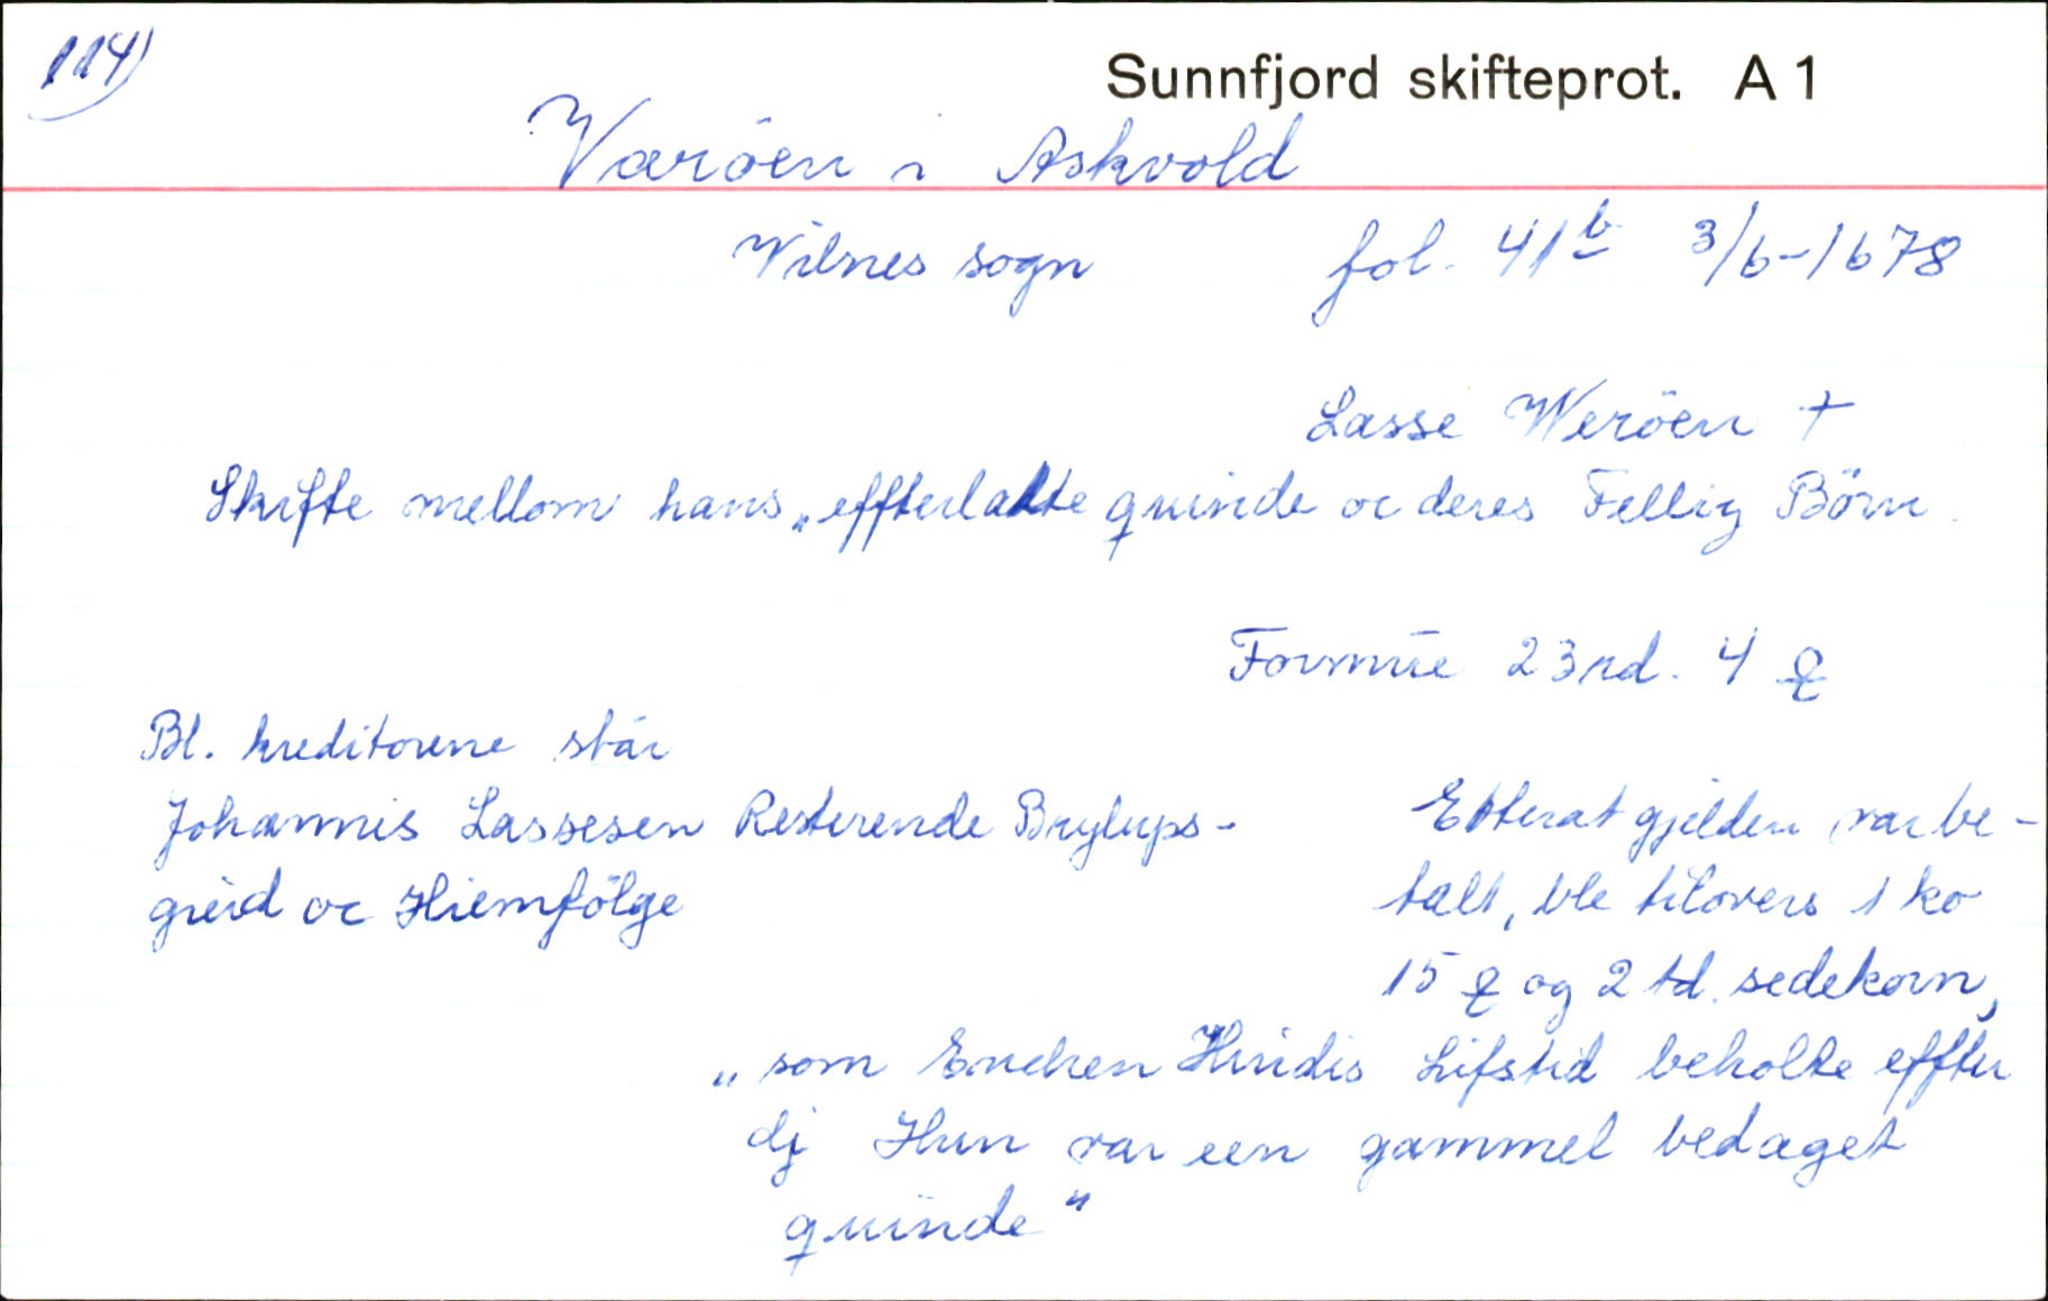 114)
Sunnfjord skifteprot. A 1
Væröen i Askvold
Vilnes sogn fol. 41b 3/6-1678
Lasse Weröen †
Skifte mellom hans „effterlatte quinde oc deres Fellig Börn.
Formue 23 rd. 4 ℔
Bl. kreditorene står
Johannis Lassesen Resterende Brylups-
gield oc Hiemfölge
Etterat gjelden var be-
talt, ble tilovers 1 ko
15 ℔ og 2 td. sedekorn,
„som Enchen Hindis Lifstid beholte effter
dj Hun var een gammel bedaget
quinde"